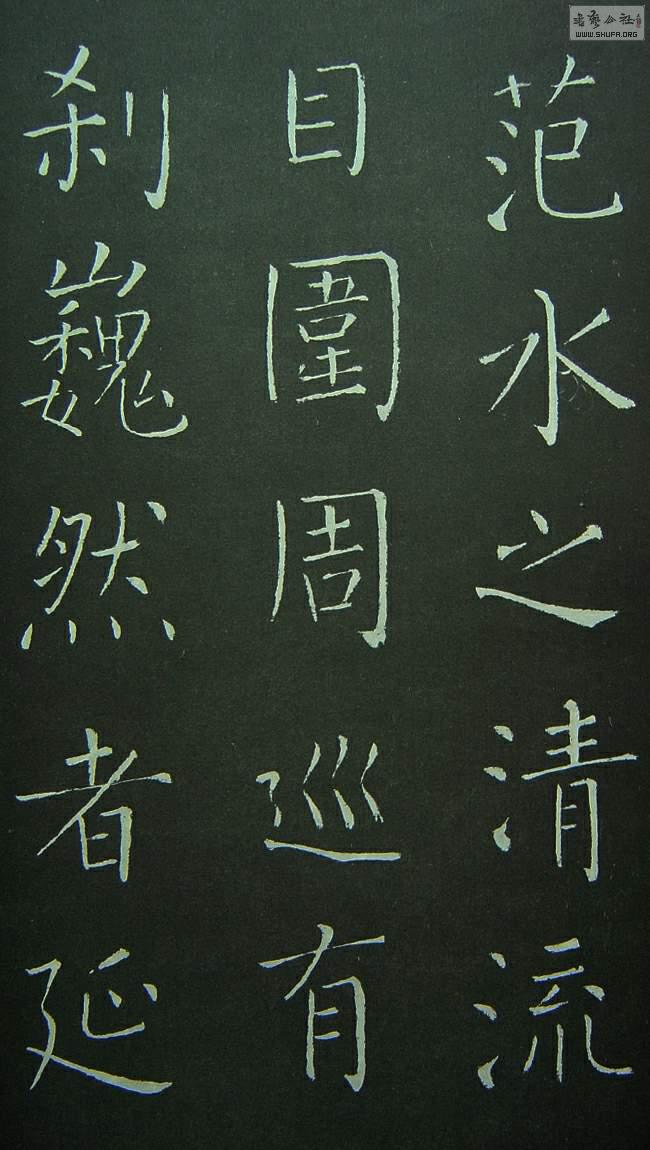 范水之清流
目圍周巡有
刹巍然者延
書藝公社
WWW.SHUFA.ORG